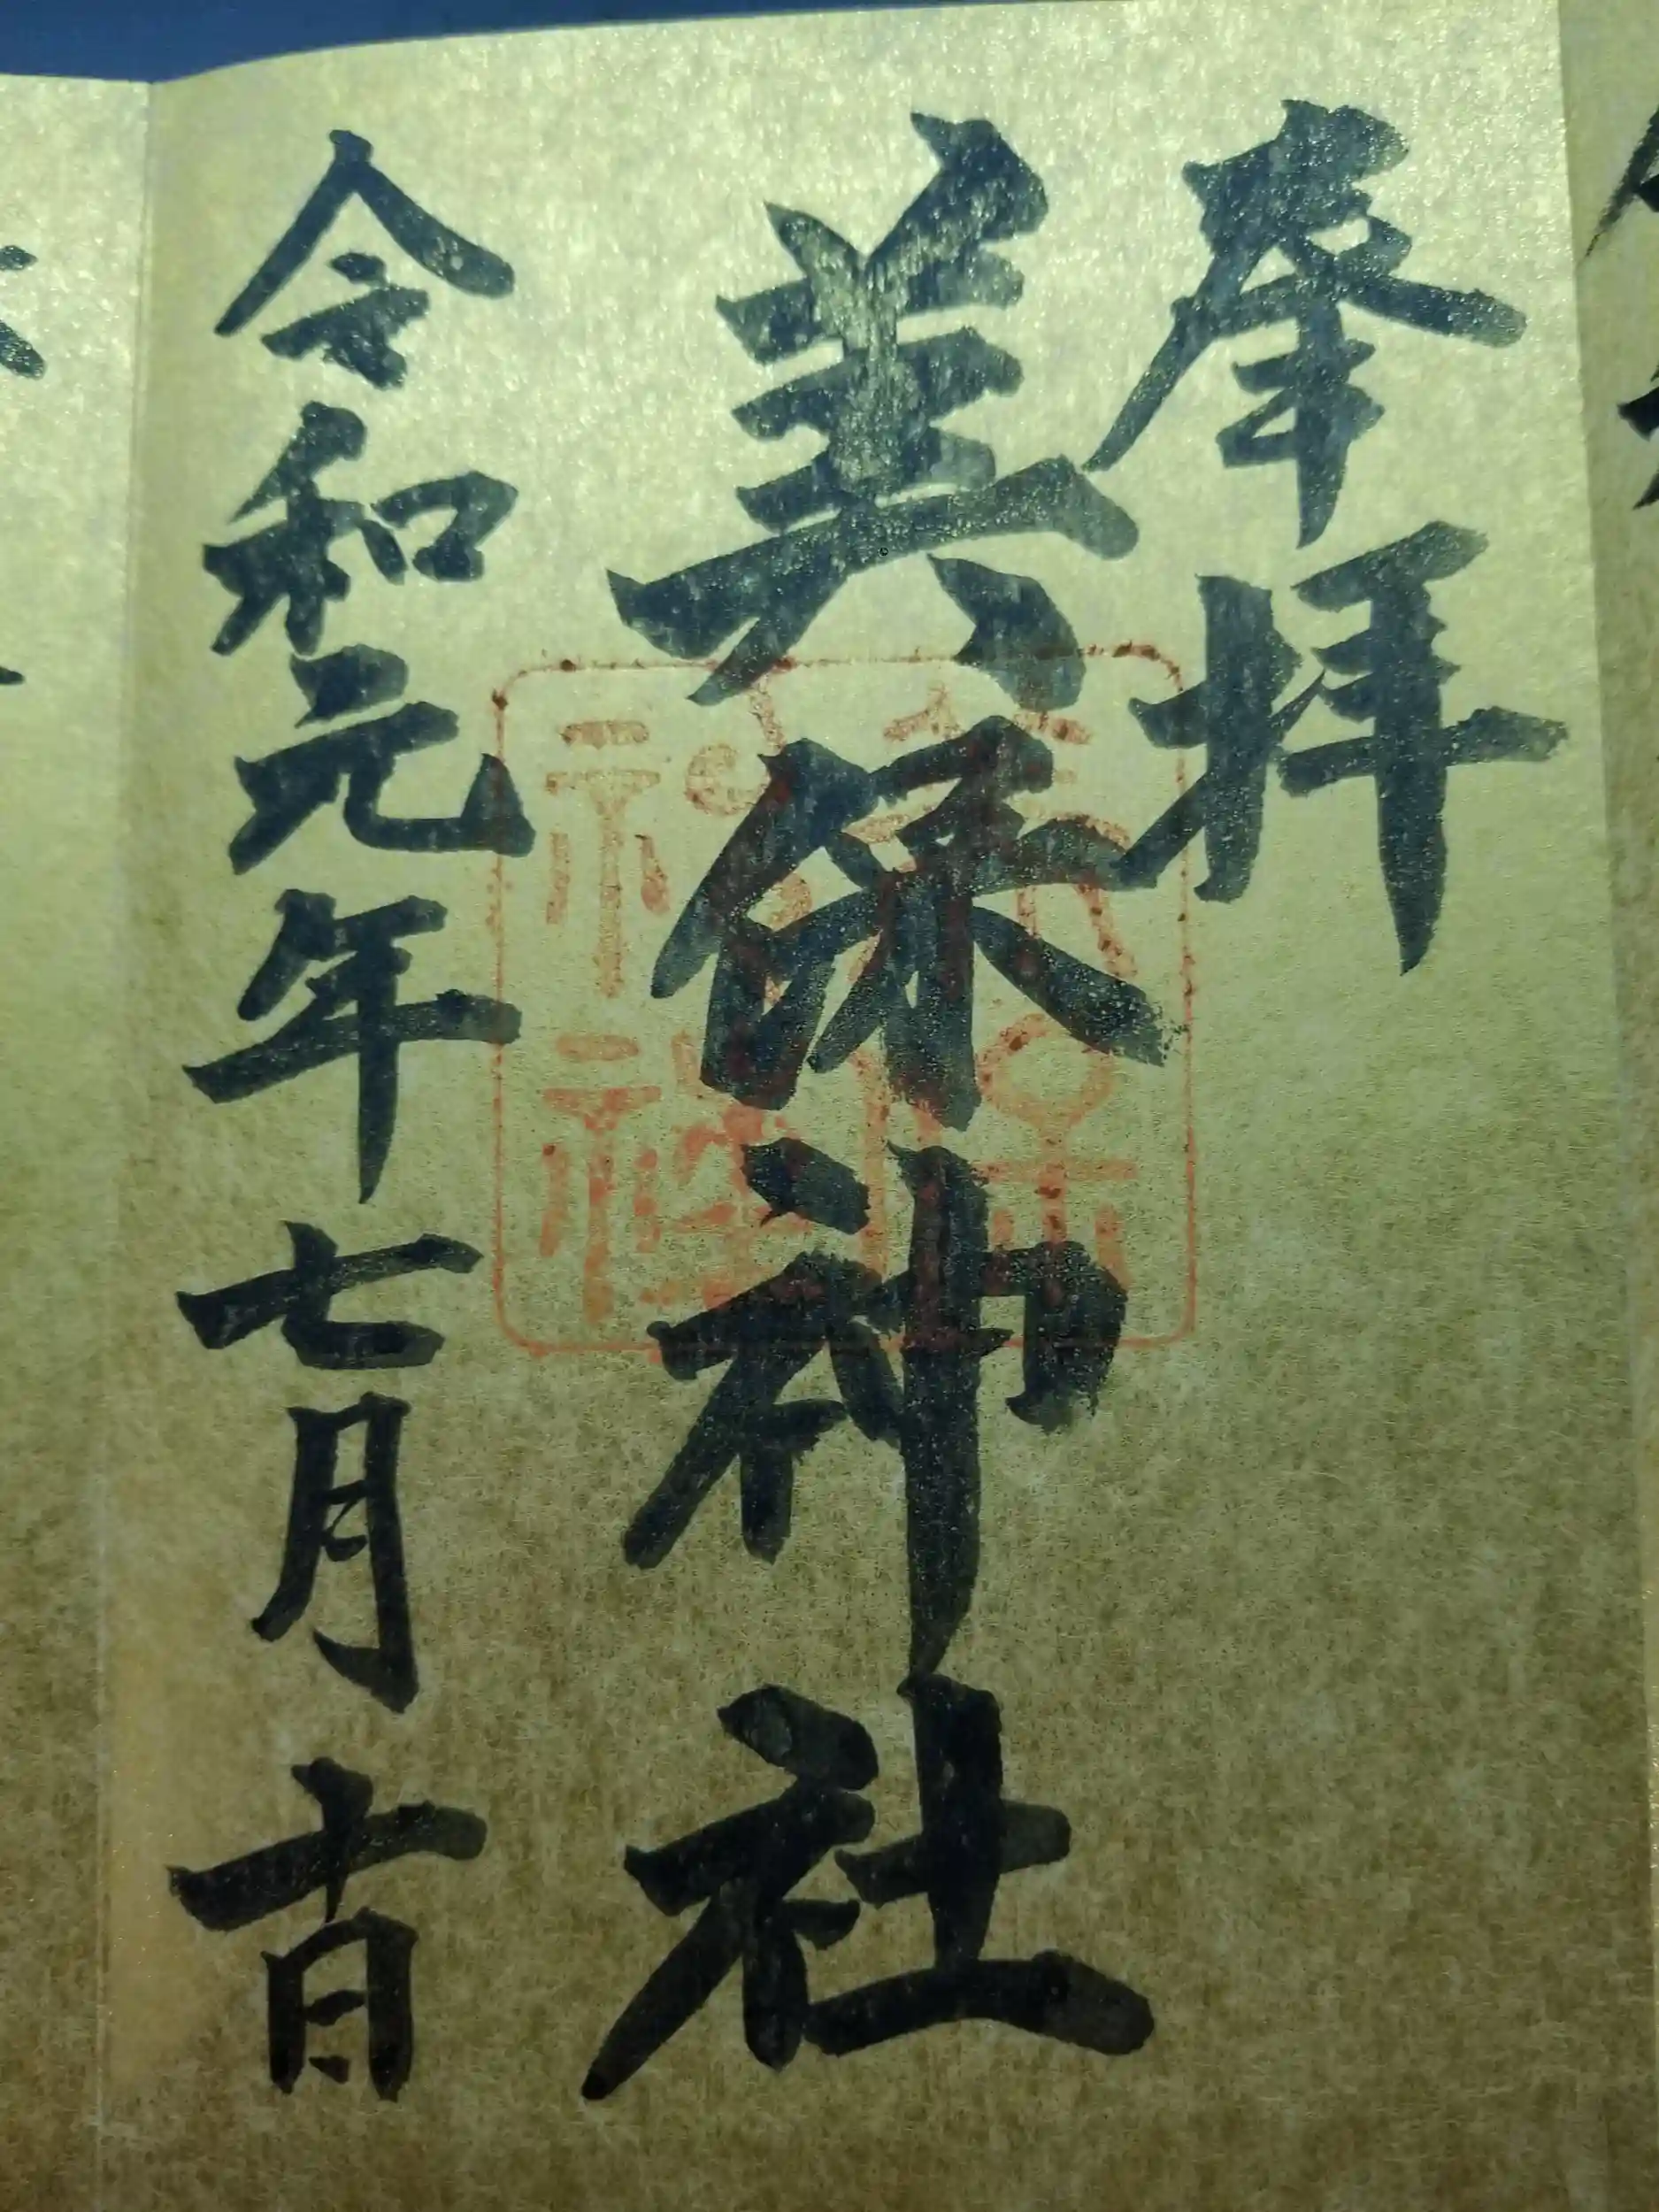 奉拝
美保神社
令和元年七月十日
美保神社